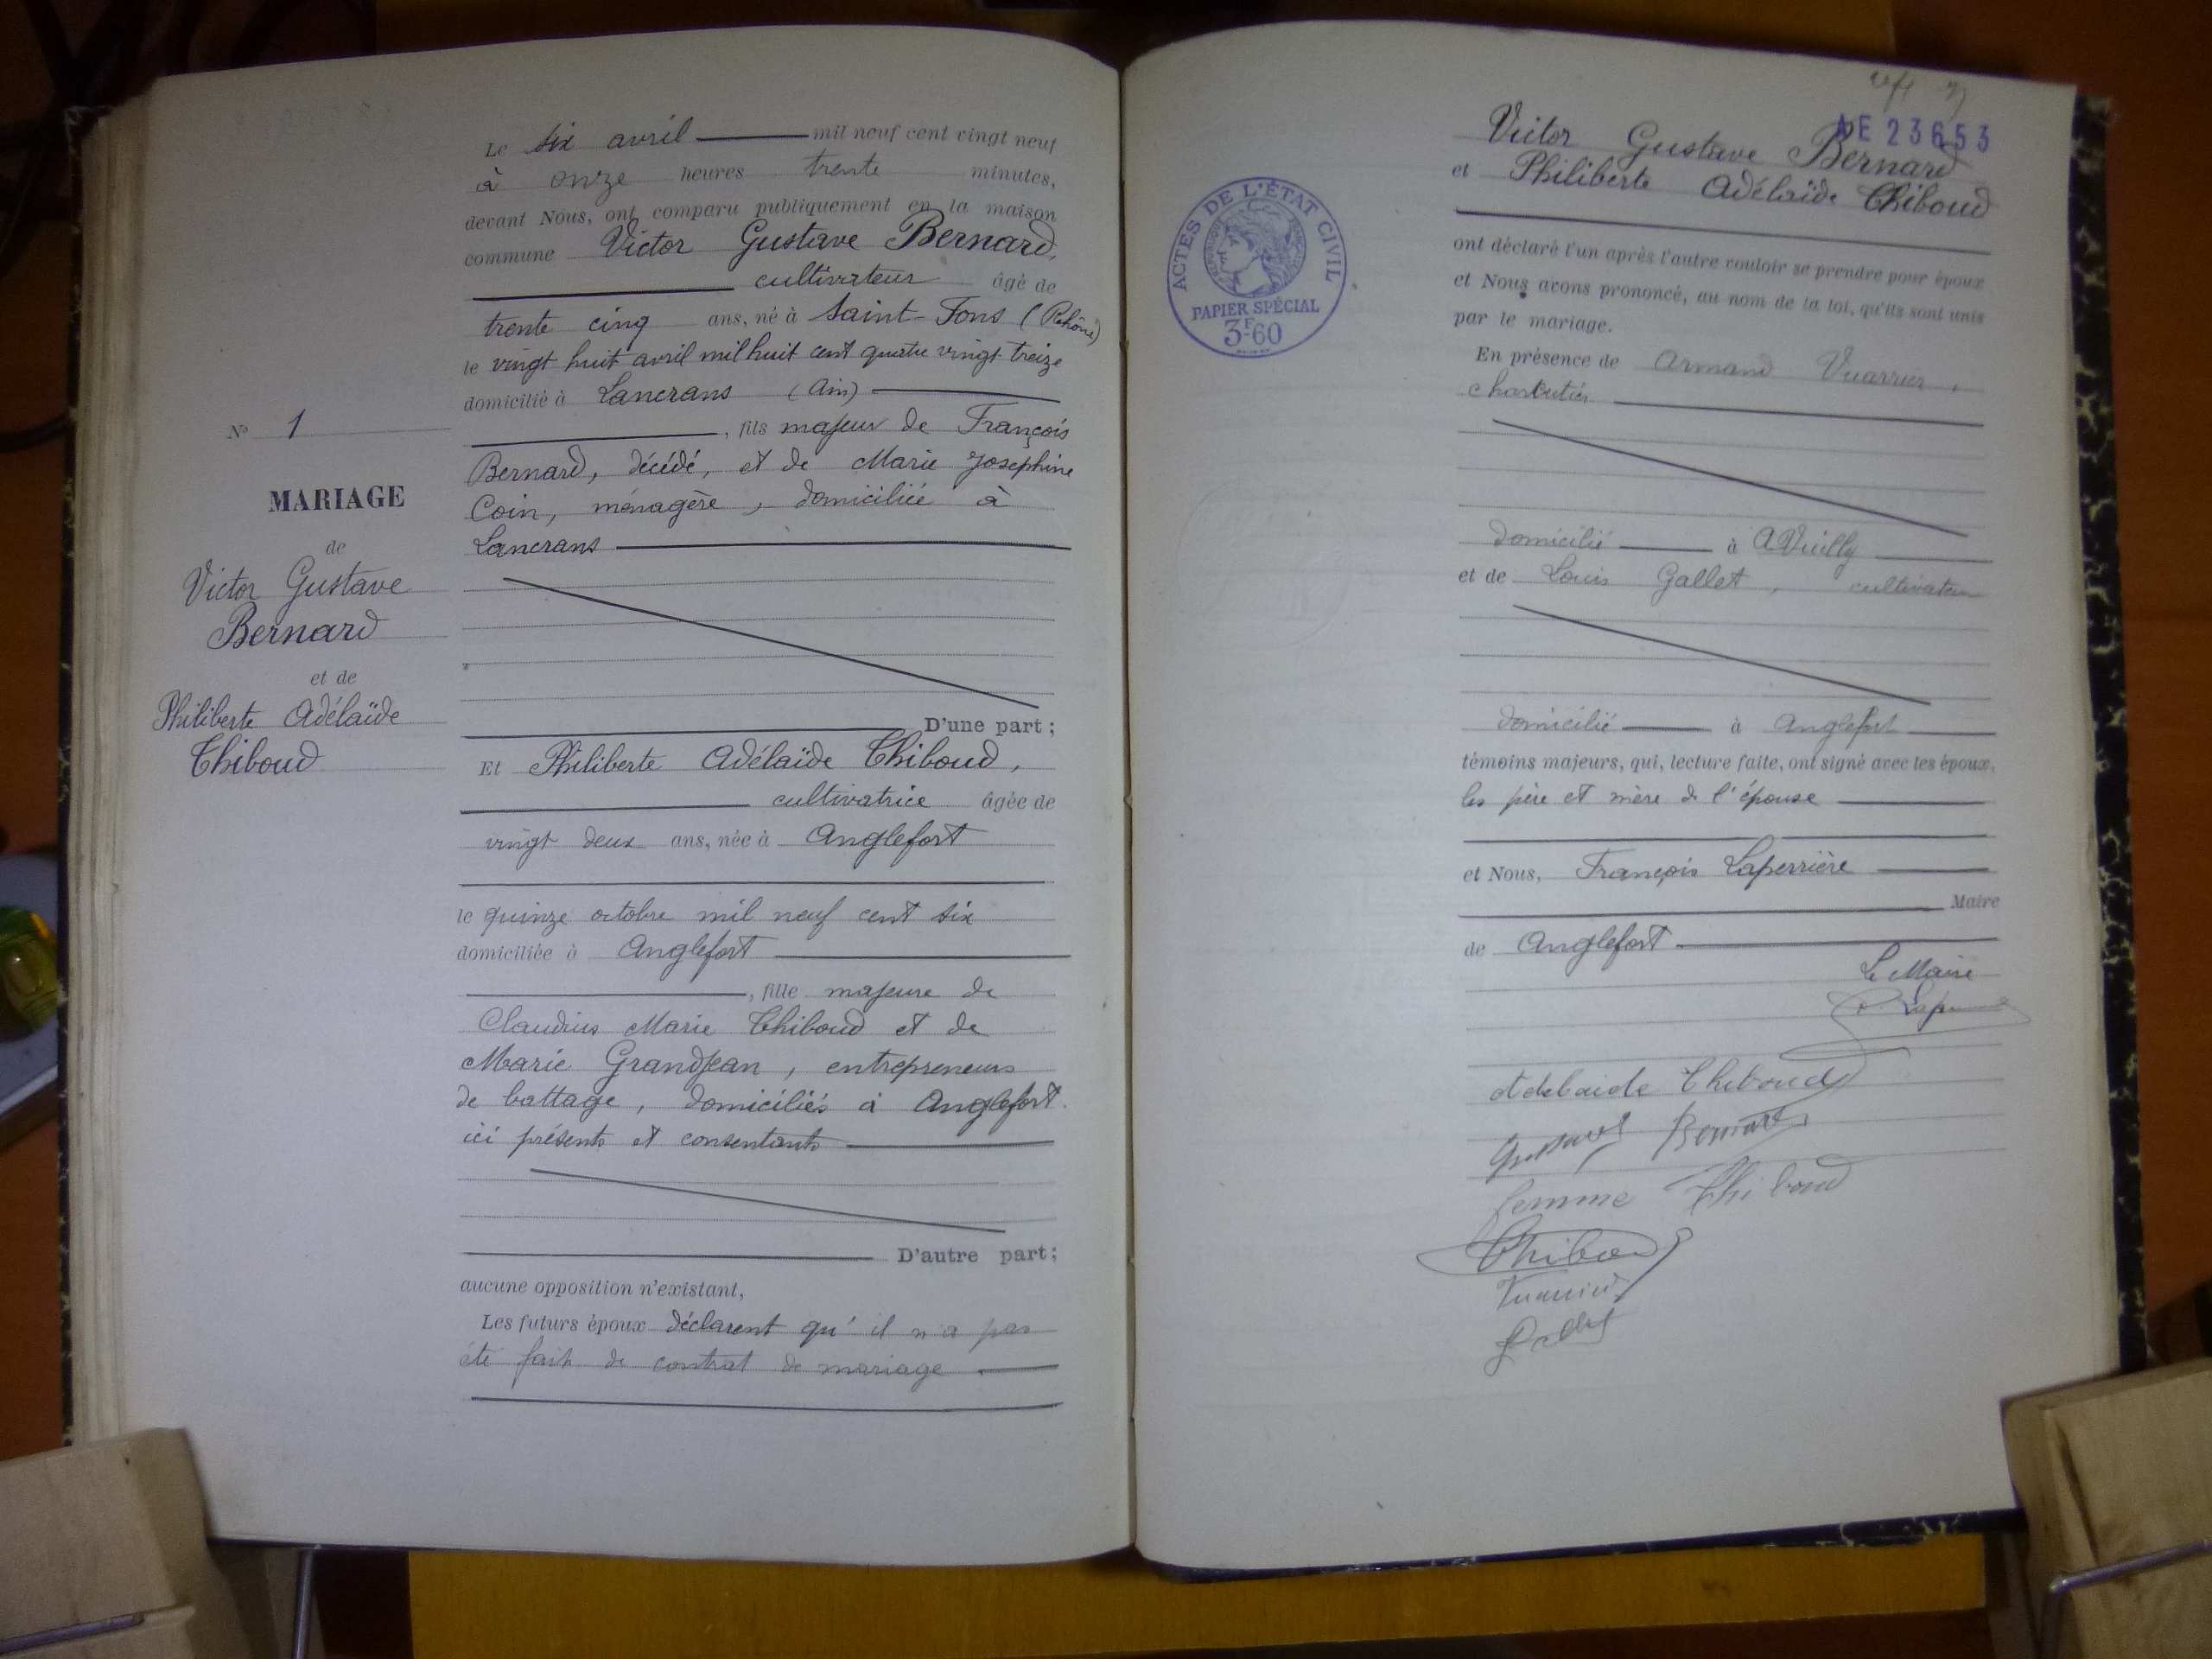 N° 1
MARIAGE
de
Victor Gustave
Bernard
et de
Philiberte Adélaïde
Thiboud
Le six avril mil neuf cent vingt neuf
à onze heures trente minutes,
devant Nous, ont comparu publiquement en la maison
commune Victor Gustave Bernard,
cultivateur âgé de
trente cinq ans, né à Saint-Fons (Rhône)
le vingt huit avril mil huit cent quatre vingt treize
domicilié à Lancrans (Ain)
, fils majeur de François
Bernard, décédé, et de Marie Josephine
Coin, ménagère, domiciliée à
Lancrans
D'une part ;
Et Philiberte Adélaïde Thiboud,
cultivatrice âgée de
vingt deux ans, née à Anglefort
le quinze octobre mil neuf cent six
domiciliée à Anglefort
, fille majeure de
Claudius Marie Thiboud et de
Marie Grandjean, entrepreneurs
de battage, domiciliés à Anglefort.
ici présents et consentants
D'autre part ;
aucune opposition n'existant,
Les futurs époux déclarent qu'il n'a pas
été fait de contrat de mariage.
AE 23653
Victor Gustave Bernard
et Philiberte Adélaïde Thiboud
ACTES DE L'ÉTAT CIVIL
PAPIER SPÉCIAL
3F60
ont déclaré l'un après l'autre vouloir se prendre pour époux
et Nous avons prononcé, au nom de la loi, qu'ils sont unis
par le mariage.
En présence de Armand Vuarrier,
charcutier
domicilié à
et de Louis Gallet, cultivateur
domicilié à Anglefort
témoins majeurs, qui, lecture faite, ont signé avec les époux,
les père et mère de l'épouse
et Nous, François Laperrière
Maire
de Anglefort
Le Maire
Adelaide Thiboud
Gustave Bernard
femme Thiboud
Thiboud
Gallet